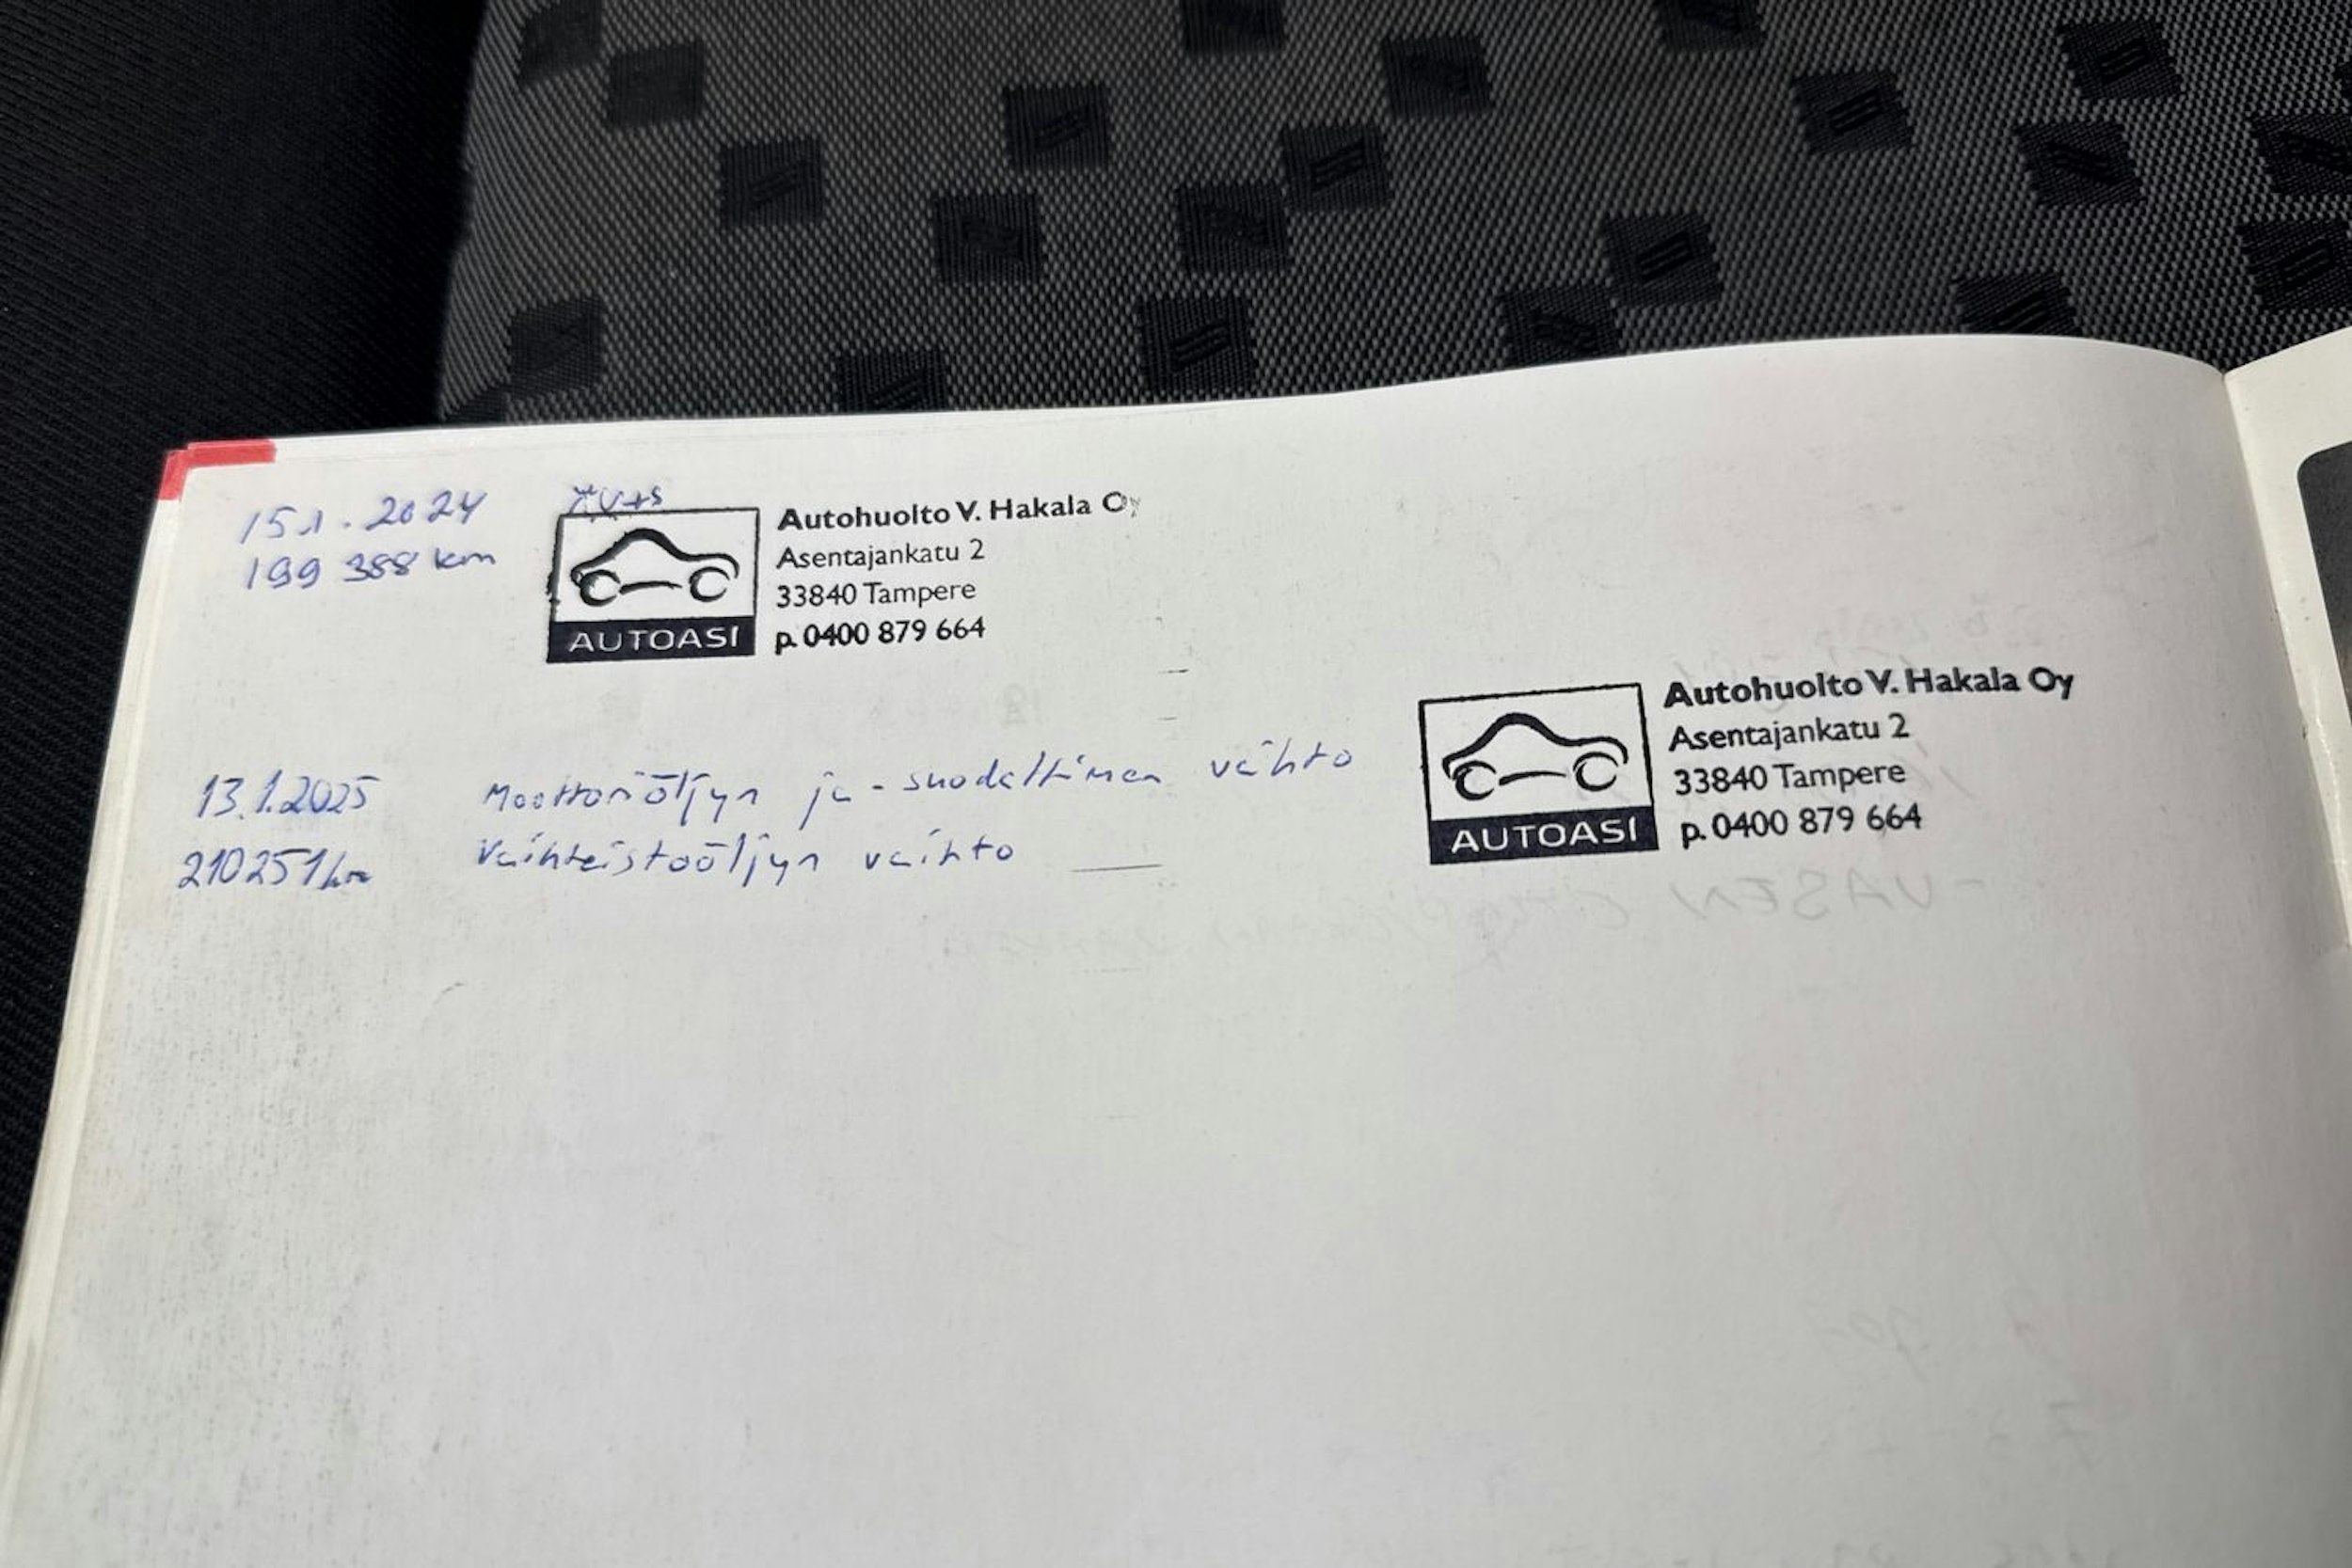 15.1.2024
199 388 km
AUTOASI
Autohuolto V. Hakala Oy
Asentajankatu 2
33840 Tampere
p. 0400 879 664
13.1.2025 Moottoriöljyn ja -suodattimen vaihto
210251 km Vaihteistoöljyn vaihto
AUTOASI
Autohuolto V. Hakala Oy
Asentajankatu 2
33840 Tampere
p. 0400 879 664